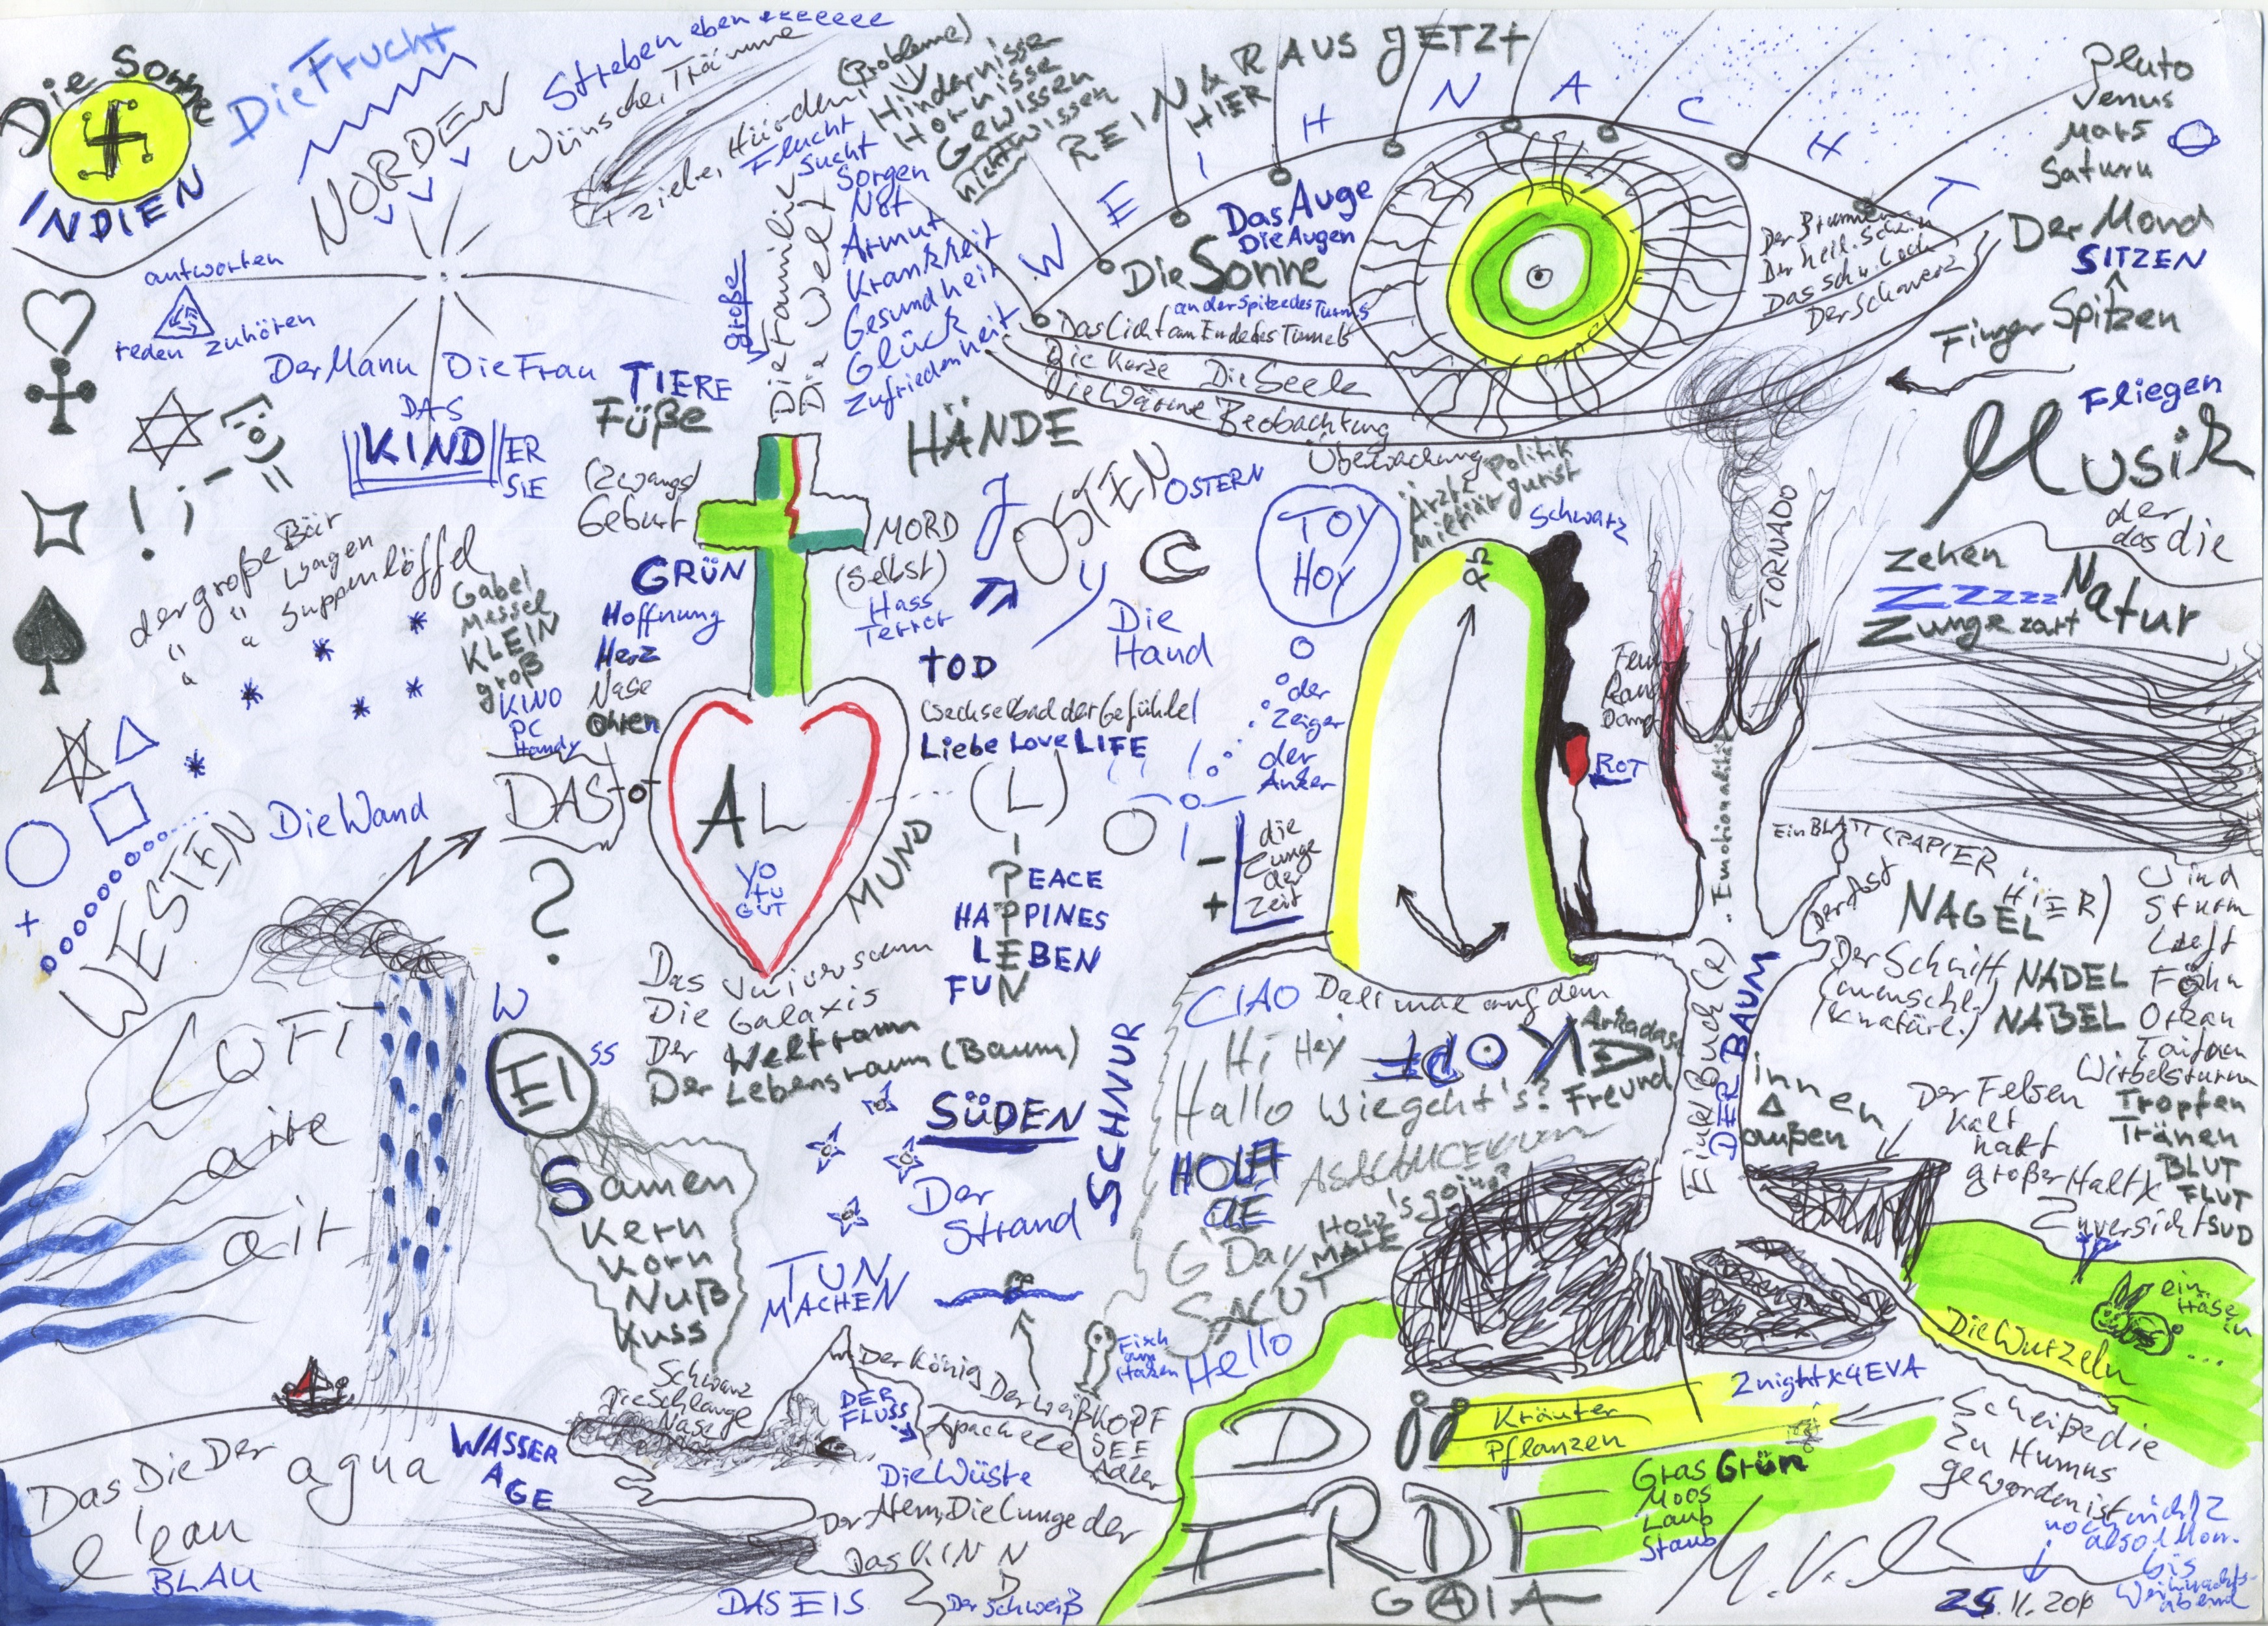 Die Sonne
INDIEN
Die Frucht
NORDEN
Streben eben eeeeeee
Wünsche, Träume
Ziele, Hürden,
(Probleme)
Hindernisse
Hornisse
Gewissen
nicht wissen
Flucht
Sucht
Sorgen
Not
Armut
Krankheit
Gesundheit
Glück
Zufriedenheit
REIN RAUS JETZT
HIER
WEIHNACHT
Pluto
Venus
Mars
Saturn
Der Mond
SITZEN
Finger Spitzen
Fliegen
antworten
reden zuhören
Der Mann Die Frau
DAS
KIND
ER
SIE
TIERE
Füße
große
Die Familie
Die Welt
Das Auge
Die Augen
Die Sonne
an der Spitze des Turms
Das Licht am Ende des Tunnels
Die Kerze Die Seele
Die Wärme Beobachtung
Überwachung
Der Schmerz
HÄNDE
Politik
Ärzte
Jurist
Militär
Schwarz
Musik
der
das die
Natur
Zehen
ZZzzzz
Zunge zart
TORNADO
(Zwangs)
Geburt
MORD
(Selbst)
Hass
Terror
GRÜN
Hoffnung
Herz
Nase
Ohren
OSTEN
OSTERN
TOY
HOY
Die
Hand
TOD
Wechselbad der Gefühle
Liebe Love LIFE
(L)
der große Bär
" " Wagen
" " Suppenlöffel
Gabel
Messel
KLEIN
groß
KINO
PC
Handy
DAS
AL
YO
TU
GUT
MUND
PEACE
HAPPINES
LEBEN
FUN
der
Zeiger
der
Anker
die
Zunge
der
Zeit
- +
αΩ
ROT
Emotionalität
Ein BLATT (PAPIER
HIER)
Der Ast
NAGEL
NADEL
NABEL
Der Schnitt
(menschl.)
(natürl.)
Wind
Sturm
Luft
Föhn
Orkan
Taifun
Wirbelsturm
Tropfen
Tränen
BLUT
FLUT
SUD
WESTEN
Die Wand
?
LUFT
aire
air
W
EI
ss
Das Universum
Die Galaxis
Der Weltraum
Der Lebensraum (Baum)
SÜDEN
Der
Strand
SCHNUR
CIAO
Hi Hey
Hallo Wie geht's?
KOPF
Arkadas
Freund
How's going?
G'Day MATE
Hello
DER BAUM
innen
außen
Der Felsen
kalt
nakt
großer Halt
Zuversicht
Samen
Kern
Korn
Nuß
Kuss
TUN
MACHEN
Fisch
am
Haken
Schwanz
Die Schlange
Nase
Der König
DER
FLUSS
Apache
Der Weißkopf
SEE
Adler
Die Wüste
Der Atem, Die Lunge der
Das KINN
DAS EIS
Der Schweiß
Das Die Der
agua
l'eau
BLAU
WASSER
AGE
ein
Hase
Die Wurzeln
2night x4EVA
Kräuter
Pflanzen
Gras Grün
Moos
Laub
Staub
D
ERDE
GAIA
Scheiße die
zu Humus
geworden ist
bis
Weihnachts-
abend